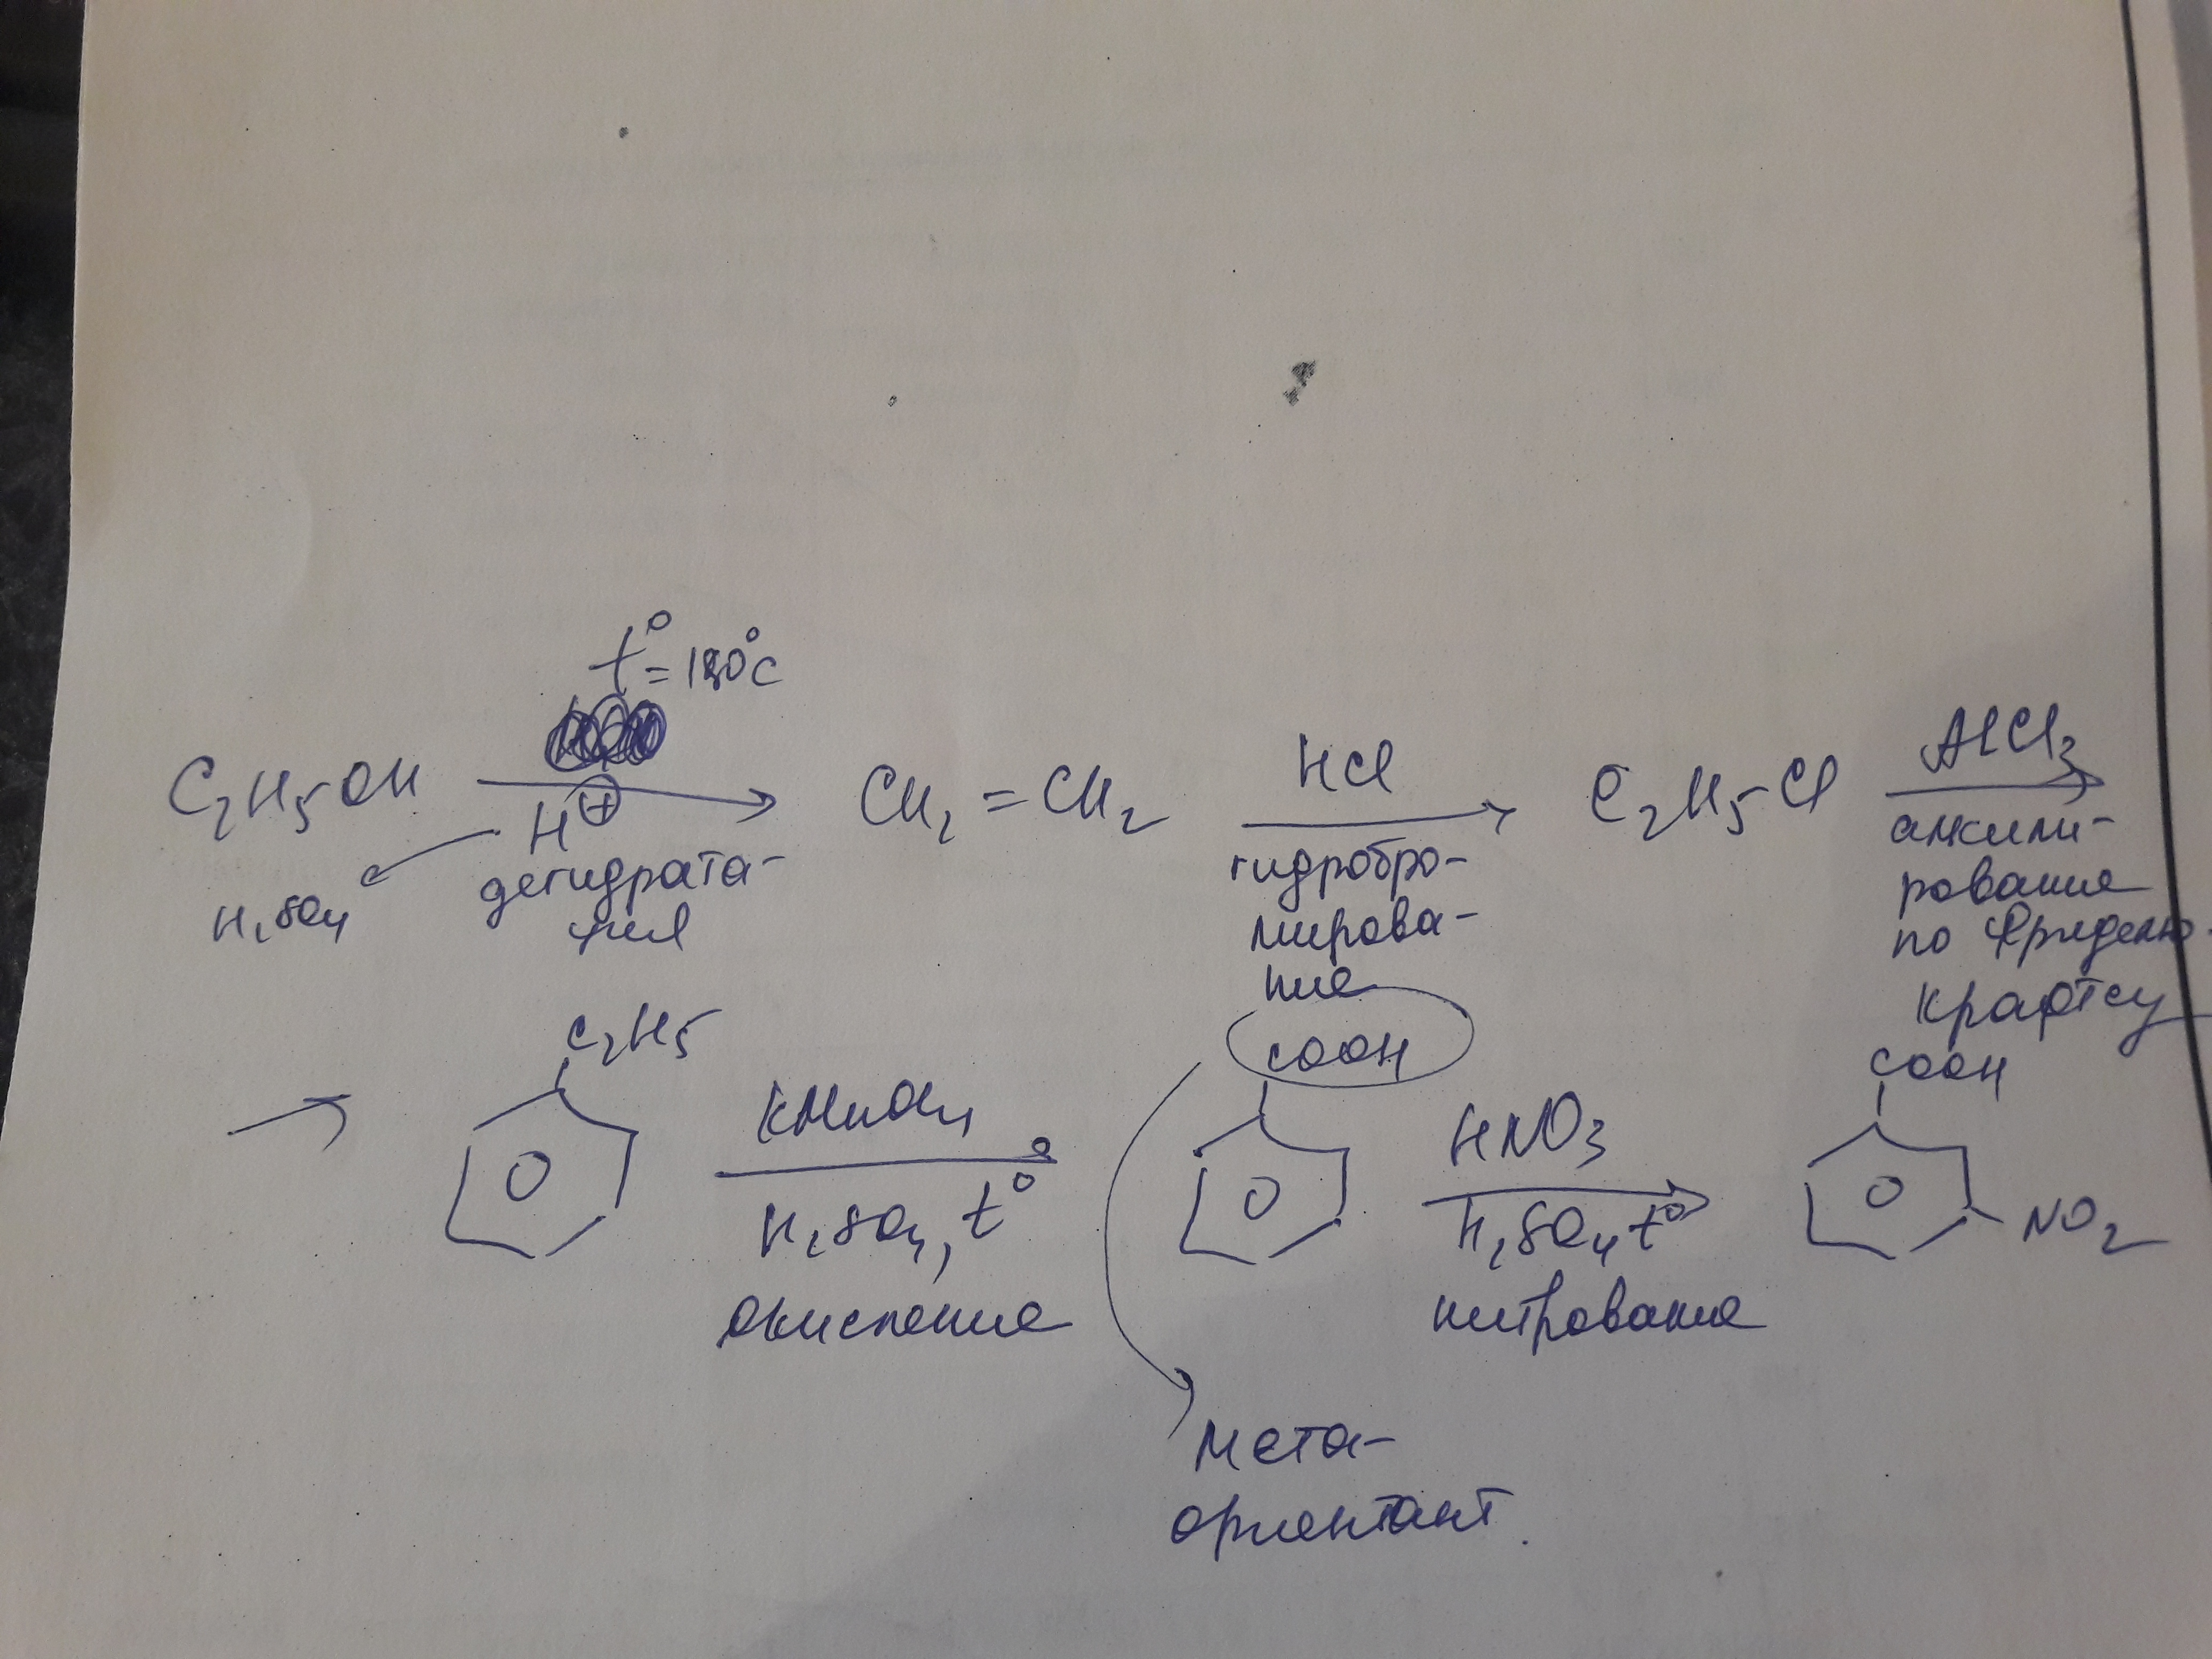 t° = 180°C
C₂H₅OH → CH₂ = CH₂ HCl → C₂H₅Cl AlCl₃ →
H⊕
H₂SO₄
дегидрата-
ция
гидробро-
мирова-
ние
алкили-
рование
по Фриделю-
Крафтсу
→ C₂H₅ KMnO₄ → COOH HNO₃ → COOH
H₂SO₄, t° H₂SO₄ t° NO₂
окисление нитрование
мета-
ориентант.